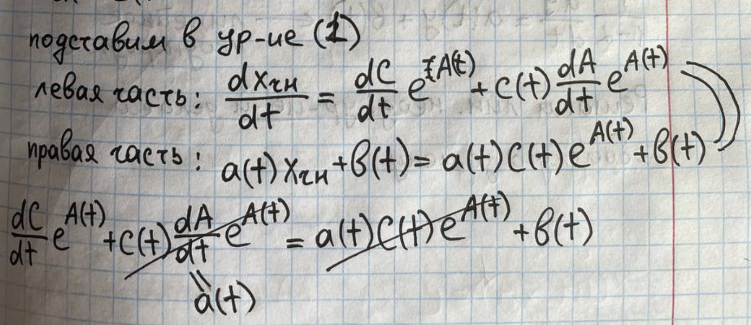 подставим в ур-ие (1)
левая часть: dxчн/dt = dC/dt e^A(t) + C(t) dA/dt e^A(t)
правая часть: a(t) xчн + b(t) = a(t) C(t) e^A(t) + b(t)
dC/dt e^A(t) + C(t) dA/dt e^A(t) = a(t) C(t) e^A(t) + b(t)
a(t)